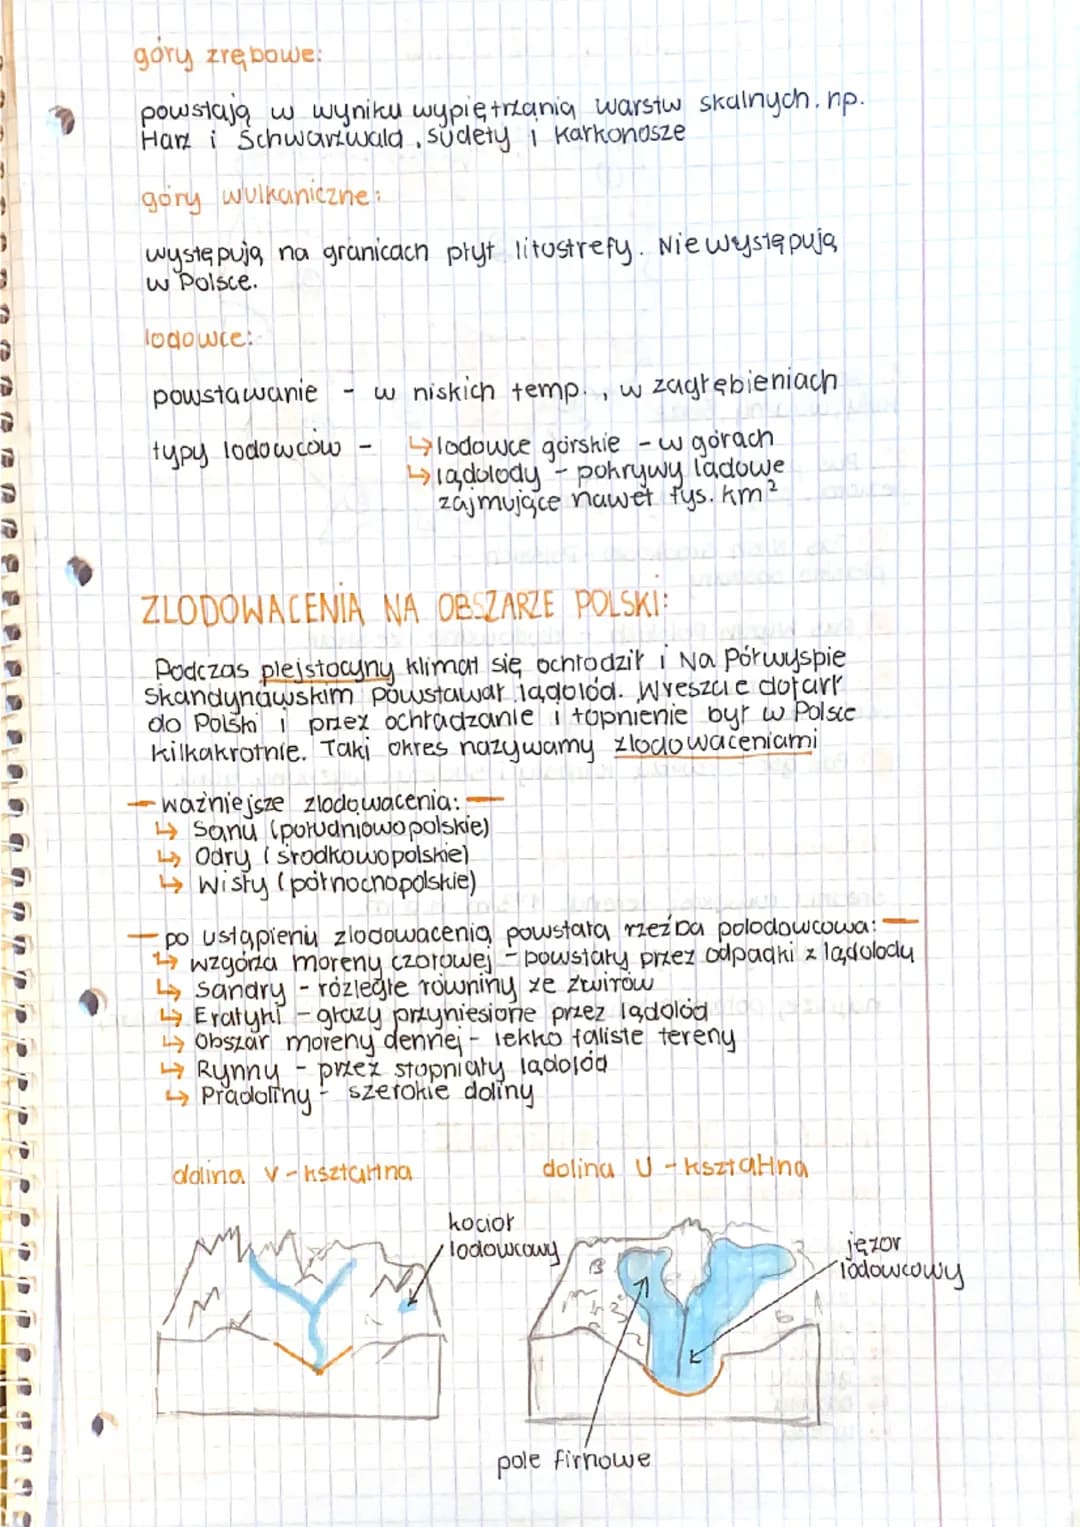 góry zrębowe:
powstają w wyniku wypiętrzania warstw skalnych. np.
Harz i Schwarzwald, sudety i Karkonosze
góry wulkaniczne:
występują na granicach płyt litostrefy. Nie występują
w Polsce.
lodowce:
powstawanie - w niskich temp., w zagłębieniach
typy lodowców - ↳lodowce górskie - w górach
↳lądolody - pokrywy lądowe
zajmujące nawet tys. km²
ZLODOWACENIA NA OBSZARZE POLSKI:
Podczas plejstocyny klimat się ochłodził i Na Półwyspie
Skandynawskim powstawał lądolód. Wreszcie dotarł
do Polski i przez ochładzanie i topnienie był w Polsce
kilkakrotnie. Taki okres nazywamy zlodowaceniami
- ważniejsze zlodowacenia: -
↳ Sanu (południowopolskie)
↳ Odry (środkowopolskie)
↳ Wisły (północnopolskie)
- po ustąpieniu zlodowacenia powstała rzeźba polodowcowa: -
↳ wzgórza moreny czołowej - powstały przez odpadki z lądolodu
↳ Sandry - rozległe równiny ze żwirów
↳ Eratyki - głazy przyniesione przez lądolód
↳ Obszar moreny dennej - lekko faliste tereny
↳ Rynny - przez stopniały lądolód
↳ Pradoliny - szerokie doliny
dolina V-kształtna
dolina U-kształtna
kocioł
lodowcowy
jęzor
lodowcowy
pole firnowe